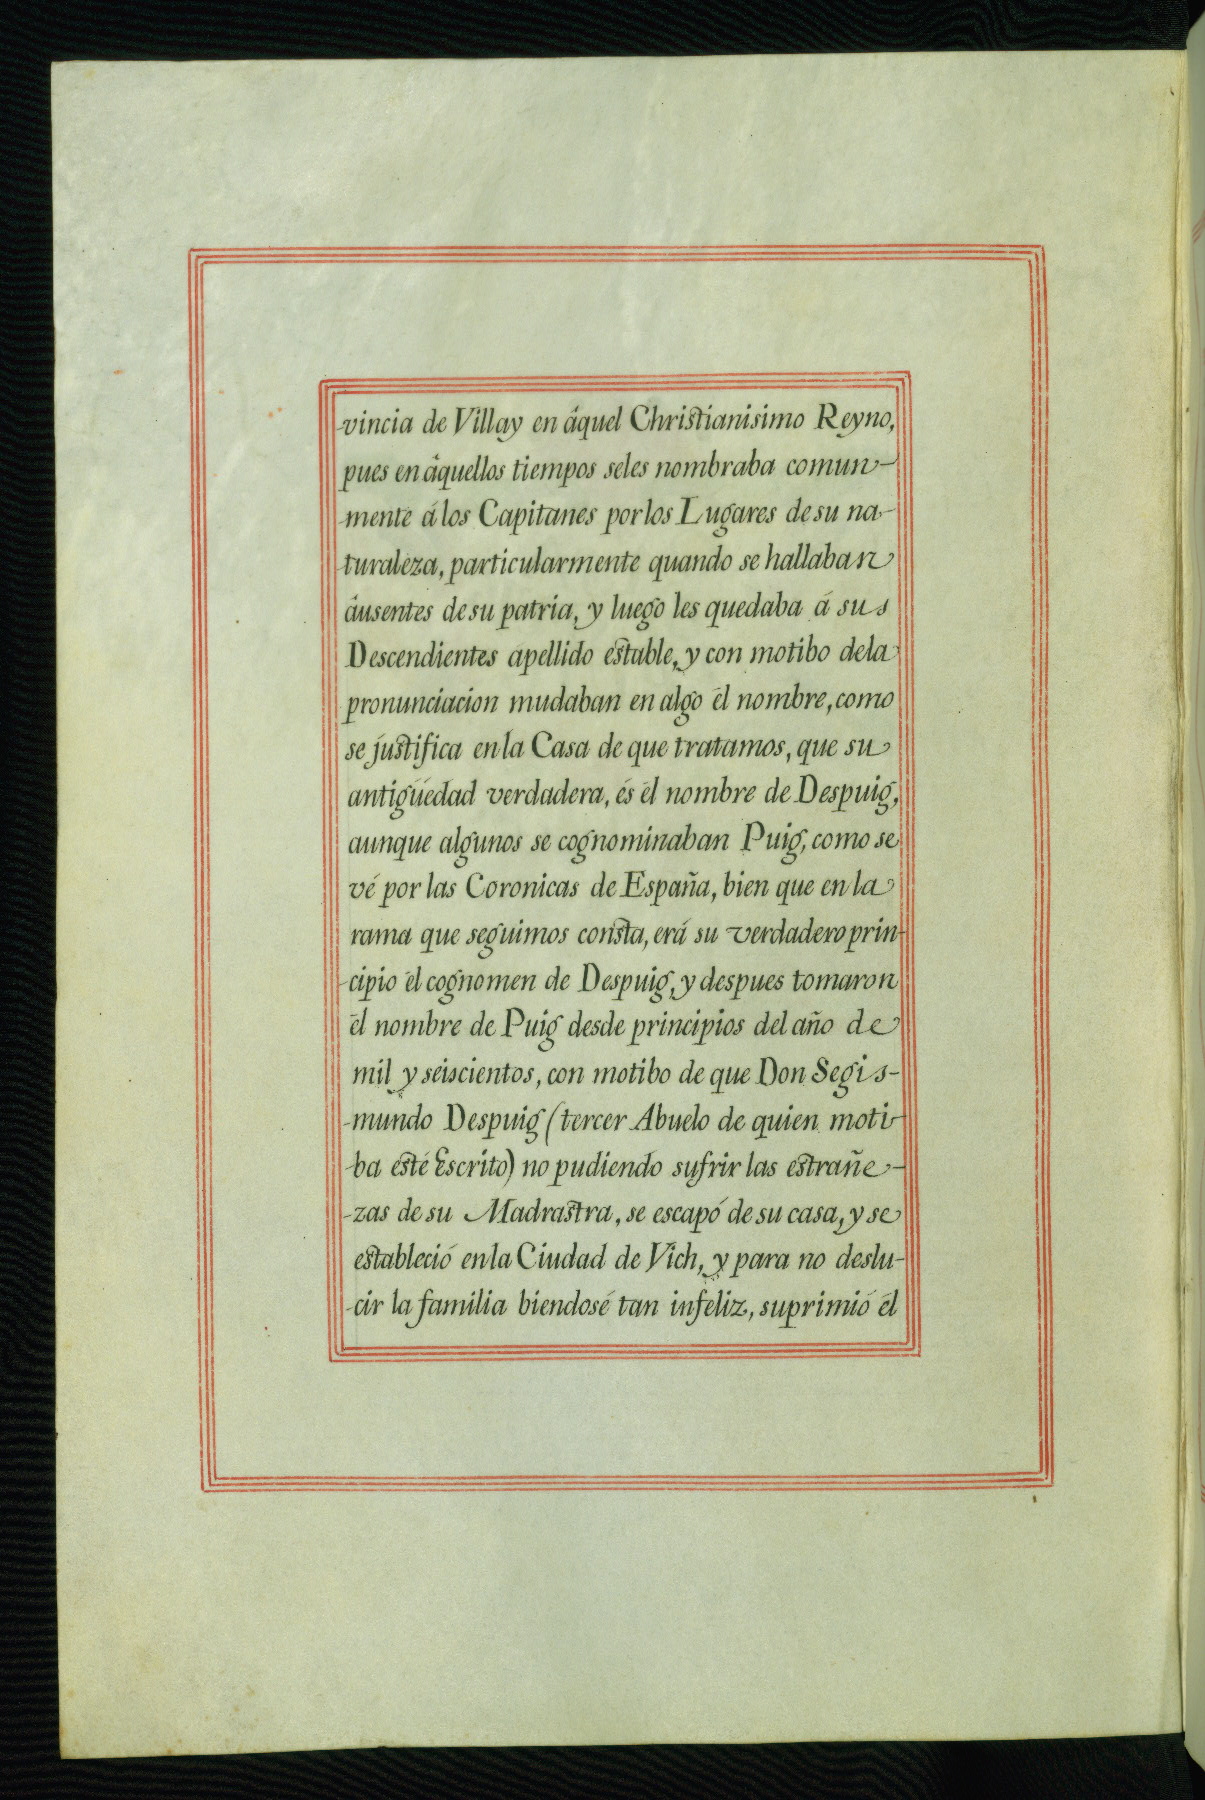 vincia de Villay en áquel Christianisimo Reyno,
pues en áquellos tiempos seles nombraba comun-
mente á los Capitanes por los Lugares de su na-
turaleza, particularmente quando se hallaban
áusentes de su patria, y luego les quedaba á sus
Descendientes apellido estable, y con motibo dela
pronunciacion mudaban en algo él nombre, como
se justifica en la Casa de que tratamos, que su
antigüedad verdadera, és él nombre de Despuig,
aunque algunos se cognominaban Puig, como se
vé por las Coronicas de España, bien que en la
rama que seguimos consta, erá su verdadero prin-
cipio él cognomen de Despuig, y despues tomaron
él nombre de Puig desde principios del año de
mil y séiscientos, con motibo de que Don Segis-
mundo Despuig (tercer Abuelo de quien moti-
ba esté Escrito) no pudiendo sufrir las estrañe-
zas de su Madrastra, se escapó de su casa, y se
estableció en la Ciudad de Vich, y para no deslu-
cir la familia biendosé tan infeliz, suprimió él